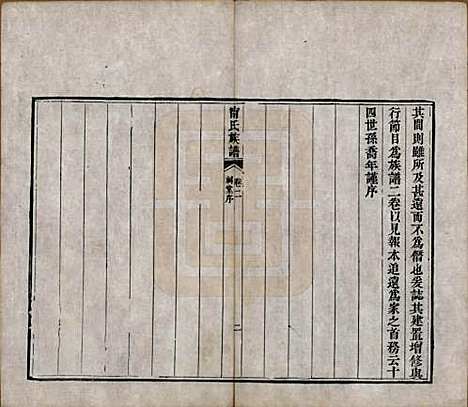 其間則雖所及甚遠而不為僭也爰誌其建置增修與
行節目為族譜二卷以見報本追遠為家之首務云十
四世孫喬年謹序
甯氏族譜
卷二
祠堂序
二